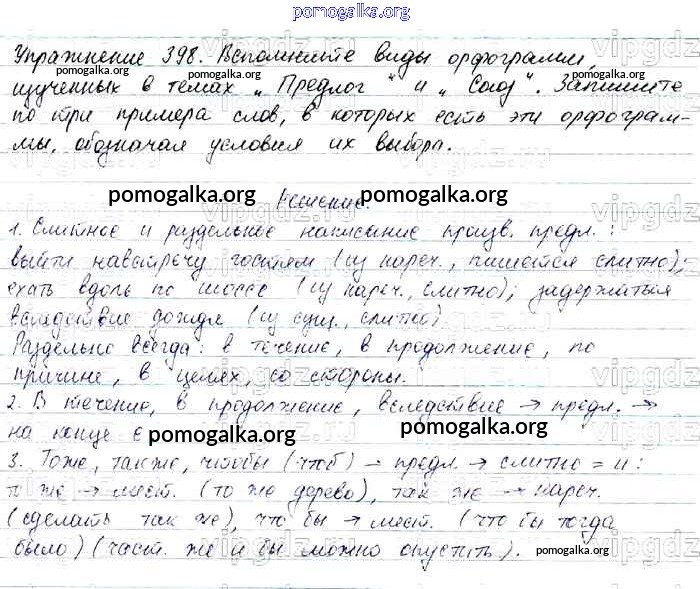 pomogalka.org
Упражнение 398. Вспомните виды орфограмм,
pomogalka.org pomogalka.org pomogalka.org
изученных в темах „Предлог“ и „Союз“. Запишите
по три примера слов, в которых есть эти орфограм-
мы, обозначая условия их выбора.
pomogalka.org Решение. pomogalka.org
1. Слитное и раздельное написание произв. предл.:
выйти навстречу гостям (из нареч., пишется слитно),
ехать вдоль по шоссе (из нареч., слитно); задержаться
вследствие дождя (из сущ., слитно)
Раздельно всегда: в течение, в продолжение, по
причине, в целях, со стороны.
2. В течение, в продолжение, вследствие → предл. →
на конце е
pomogalka.org pomogalka.org
3. Тоже, также, чтобы (чтоб) – предл. → слитно = и:
то же → мест. (то же дерево), так же → нареч.
(сделать так же), что бы → мест. (что бы тогда
было) (част. же и бы можно опустить).
pomogalka.org pomogalka.org
vipgdz.ru